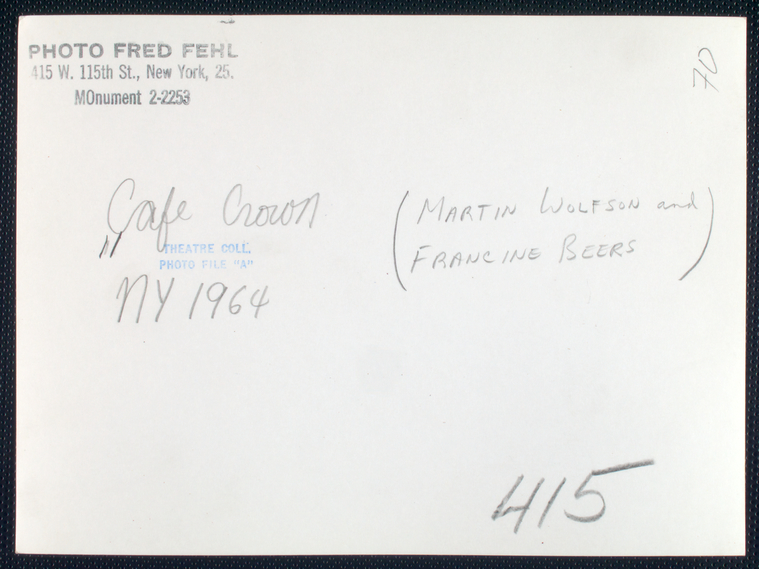 PHOTO FRED FEHL
415 W. 115th St., New York, 25.
MOnument 2-2253
70
Cafe Crown
(MARTIN WOLFSON and
FRANCINE BEERS)
"
THEATRE COLL.
PHOTO FILE "A"
NY 1964
415